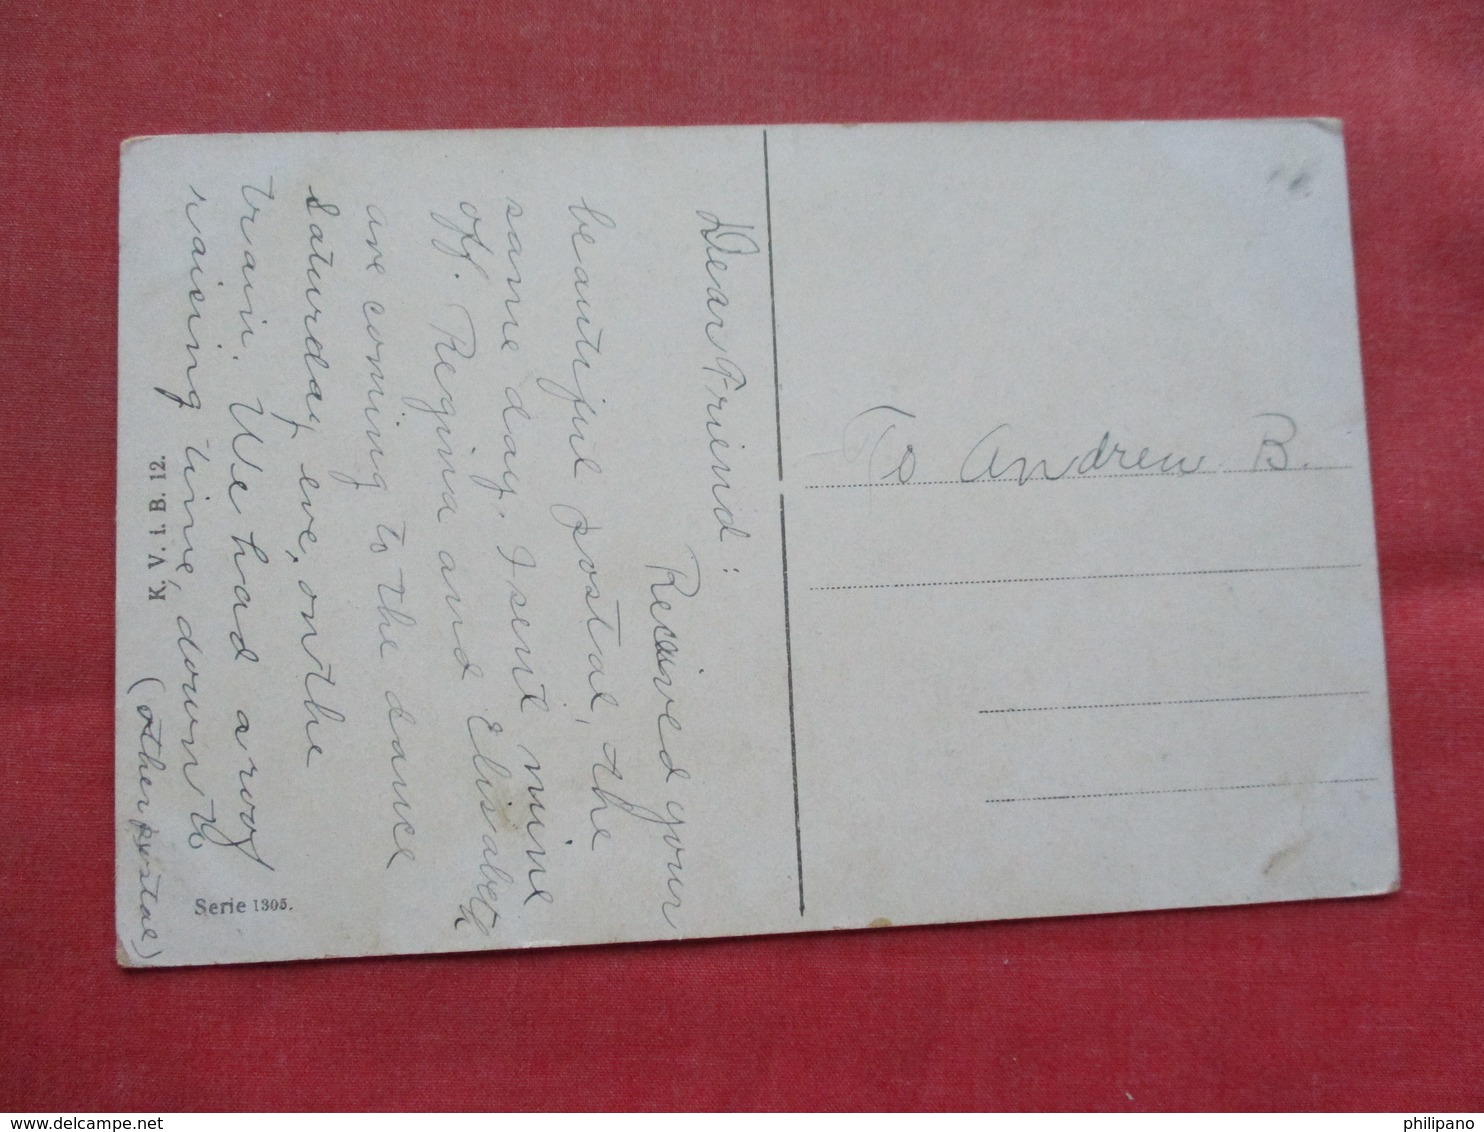 Dear Friend:
Received your
beautiful postal, the
same day, I sent mine
off. Regina and Elisabeth
are coming to the dance
Saturday eve, on the
train. We had a roof
raising time, down to
(other postal)
K. V. i. B. 12.
Serie 1305.
To Andrew B.
philipano